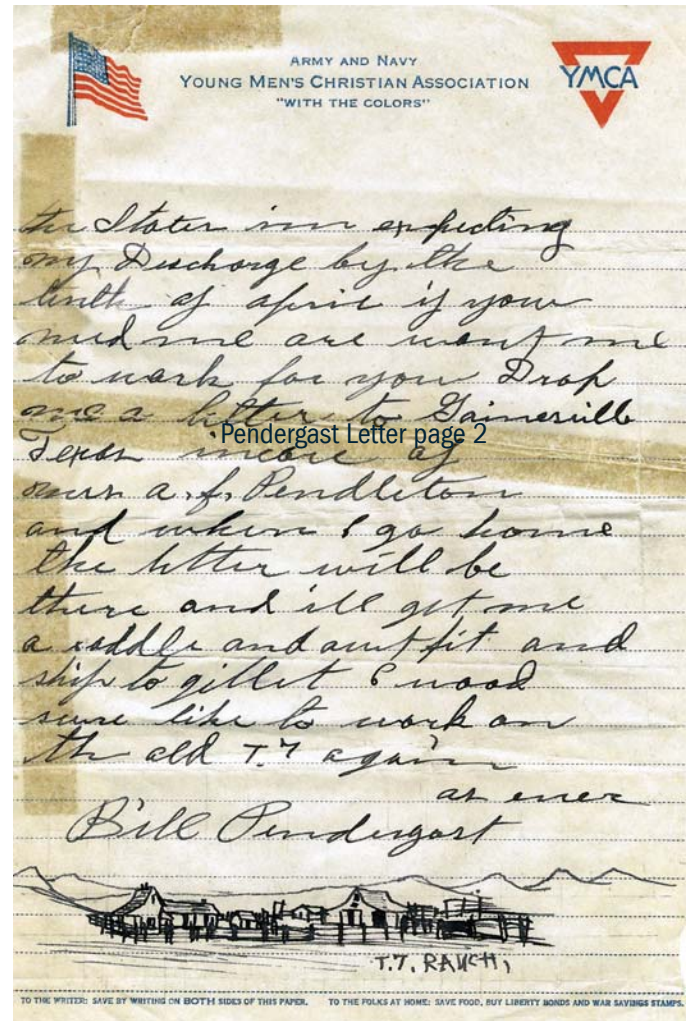 ARMY AND NAVY
YOUNG MEN'S CHRISTIAN ASSOCIATION
"WITH THE COLORS"
YMCA
the States im expecting
my Discharge by the
tenth of april if your
need me are want me
to work for you Drop
me a letter to Gainesville
Pendergast Letter page 2
Texas incare of
mrs a.f. Pendleton
and when I go home
the letter will be
there and ill get me
a saddle and out fit and
ship to gillet I wood
sure like to work on
the old T.7 again
as ever
Bill Pendergast
T.7. RANCH,
TO THE WRITER: SAVE BY WRITING ON BOTH SIDES OF THIS PAPER. TO THE FOLKS AT HOME: SAVE FOOD, BUY LIBERTY BONDS AND WAR SAVINGS STAMPS.